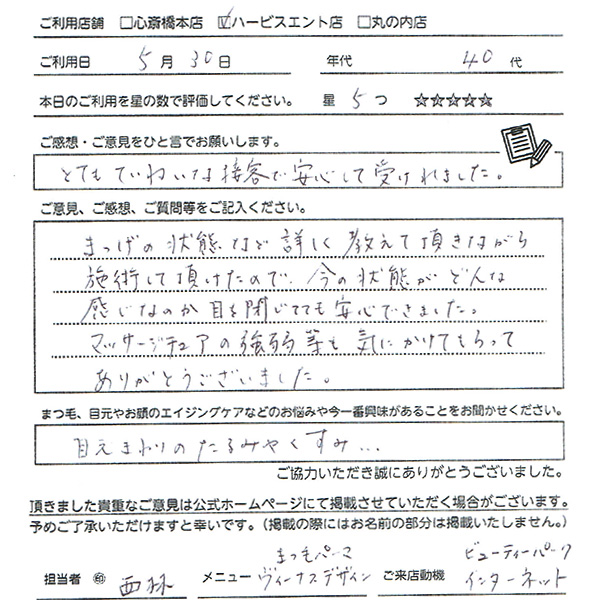 ご利用店舗 □心斎橋本店 ☑ハービスエント店 □丸の内店
ご利用日 5月30日 年代 40代
本日のご利用を星の数で評価してください。 星 5つ ☆☆☆☆☆
ご感想・ご意見をひと言でお願いします。
とてもていねいな接客で安心して受けれました。
ご意見、ご感想、ご質問等をご記入ください。
まつげの状態など詳しく教えて頂きながら
施術して頂けたので、今の状態がどんな
感じなのか目を閉じてても安心できました。
マッサージチェアの強弱等も気にかけてもらって
ありがとうございました。
まつ毛、目元やお顔のエイジングケアなどのお悩みや今一番興味があることをお聞かせください。
目元まわりのたるみやくすみ…
ご協力いただき誠にありがとうございました。
頂きました貴重なご意見は公式ホームページにて掲載させていただく場合がございます。
予めご了承いただけますと幸いです。（掲載の際にはお名前の部分は掲載いたしません。）
まつ毛パーマ ビューティーパーク
担当者 ㊞ 西林 メニュー ヴィーナスデザイン ご来店動機 インターネット